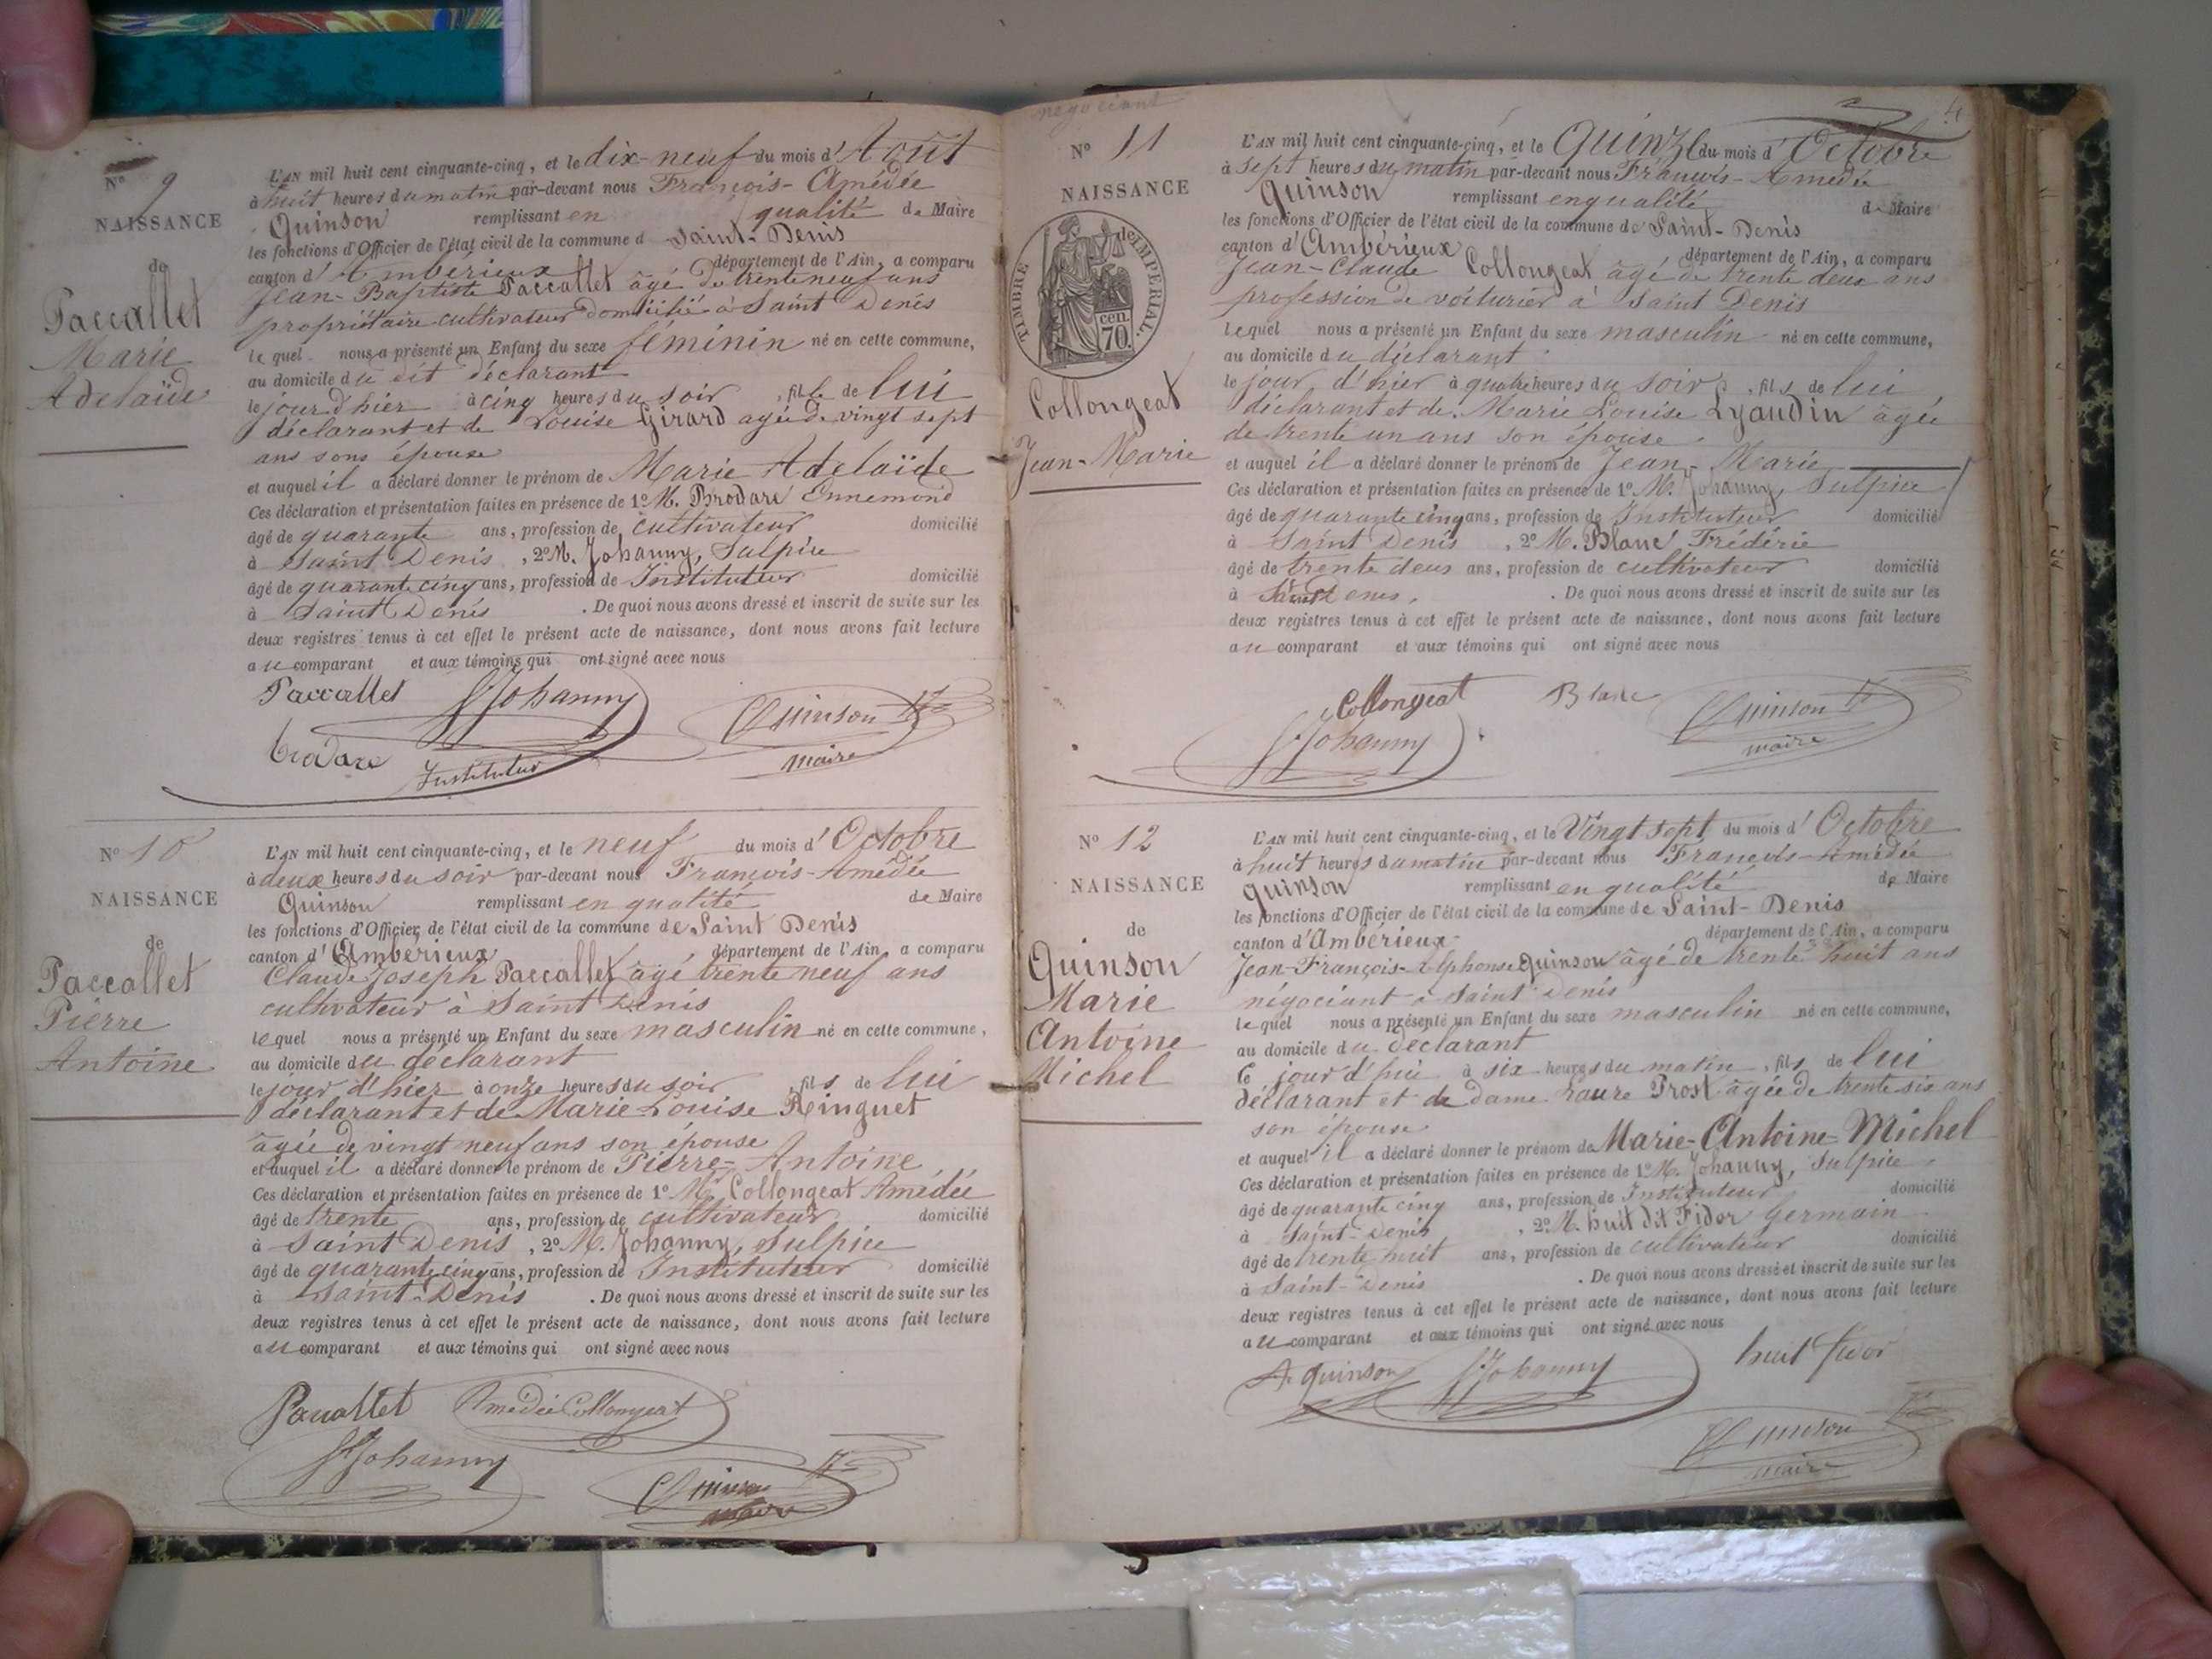 N° 9
NAISSANCE
de
Paccallet
Marie
Adelaïde
L'AN mil huit cent cinquante-cinq, et le dix-neuf du mois d'Août
à huit heures du matin par-devant nous François-Amédée
Quinson remplissant en qualité de Maire
les fonctions d'Officier de l'état civil de la commune d Saint-Denis
canton d'Ambérieux département de l'Ain, a comparu
Jean-Baptiste Paccallet âgé de trente neuf ans
propriétaire cultivateur domicilié à Saint Denis
lequel nous a présenté un Enfant du sexe féminin né en cette commune,
au domicile du dit déclarant
le jour d'hier à cinq heures du soir, fille de lui
déclarant et de Louise Girard agée de vingt sept
ans sons épouse
et auquel il a déclaré donner le prénom de Marie Adelaïde
Ces déclaration et présentation faites en présence de 1° M. Brodare Ennemond
âgé de quarante ans, profession de cultivateur domicilié
à Saint Denis, 2° M. Johanny, Sulpice
âgé de quarante cinq ans, profession de Instituteur domicilié
à Saint Denis. De quoi nous avons dressé et inscrit de suite sur les
deux registres tenus à cet effet le présent acte de naissance, dont nous avons fait lecture
au comparant et aux témoins qui ont signé avec nous
Paccallet SJohanny Quinson
brodare Instituteur maire
N° 10
NAISSANCE
de
Paccallet
Pierre
Antoine
L'AN mil huit cent cinquante-cinq, et le neuf du mois d'Octobre
à deux heures du soir par-devant nous François-Amédée
Quinson remplissant en qualité de Maire
les fonctions d'Officier de l'état civil de la commune de Saint Denis
canton d'Ambérieux département de l'Ain, a comparu
Claude Joseph Paccallet âgé trente neuf ans
cultivateur à Saint Denis
lequel nous a présenté un Enfant du sexe masculin né en cette commune,
au domicile du déclarant
le jour d'hier à onze heures du soir, fils de lui
déclarant et de Marie-Louise Ringuet
âgée de vingt neuf ans son épouse
et auquel il a déclaré donner le prénom de Pierre-Antoine
Ces déclaration et présentation faites en présence de 1° Mr Collongeat Amédée
âgé de trente ans, profession de cultivateur domicilié
à Saint Denis, 2° M. Johanny, Sulpice
âgé de quarante cinq ans, profession de Instituteur domicilié
à Saint-Denis. De quoi nous avons dressé et inscrit de suite sur les
deux registres tenus à cet effet le présent acte de naissance, dont nous avons fait lecture
au comparant et aux témoins qui ont signé avec nous
Paccallet Amédée Collongeat
SJohanny Quinson
maire
négociant
4
N° 11
NAISSANCE
TIMBRE IMPERIAL.
cen.
70.
de
Collongeat
Jean-Marie
L'AN mil huit cent cinquante-cinq, et le Quinze du mois d'Octobre
à sept heures du matin par-devant nous François-Amédée
Quinson remplissant en qualité de Maire
les fonctions d'Officier de l'état civil de la commune de Saint-Denis
canton d'Ambérieux département de l'Ain, a comparu
Jean-Claude Collongeat âgé de trente deux ans
profession de voiturier à Saint Denis
lequel nous a présenté un Enfant du sexe masculin né en cette commune,
au domicile du déclarant
le jour d'hier à quatre heures du soir, fils de lui
déclarant et de Marie Louise Lyaudin âgée
de trente un ans son épouse
et auquel il a déclaré donner le prénom de Jean-Marie
Ces déclaration et présentation faites en présence de 1° M. Johanny, Sulpice
âgé de quarante cinq ans, profession de Instituteur domicilié
à Saint Denis, 2° M. Blanc Frédéric
âgé de trente deux ans, profession de cultivateur domicilié
à Saint Denis. De quoi nous avons dressé et inscrit de suite sur les
deux registres tenus à cet effet le présent acte de naissance, dont nous avons fait lecture
au comparant et aux témoins qui ont signé avec nous
Collongeat Blanc Quinson
SJohanny maire
N° 12
NAISSANCE
de
Quinson
Marie
Antoine
Michel
L'AN mil huit cent cinquante-cinq, et le Vingt sept du mois d'Octobre
à huit heures du matin par-devant nous François-Amédée
Quinson remplissant en qualité de Maire
les fonctions d'Officier de l'état civil de la commune de Saint-Denis
canton d'Ambérieux département de l'Ain, a comparu
Jean-François-Alphonse Quinson âgé de trente huit ans
négociant à Saint Denis
lequel nous a présenté un Enfant du sexe masculin né en cette commune,
au domicile du déclarant
Ce jour d'hui à six heures du matin, fils de lui
déclarant et de dame Laure Prost agée de trente six ans
son épouse
et auquel il a déclaré donner le prénom de Marie-Antoine-Michel
Ces déclaration et présentation faites en présence de 1° M. Johanny, Sulpice
âgé de quarante cinq ans, profession de Instituteur domicilié
à Saint-Denis, 2° M. huit dit Fidor Germain
âgé de trente huit ans, profession de cultivateur domicilié
à Saint-Denis. De quoi nous avons dressé et inscrit de suite sur les
deux registres tenus à cet effet le présent acte de naissance, dont nous avons fait lecture
au comparant et aux témoins qui ont signé avec nous
A. Quinson SJohanny huit fidor
Quinson
maire